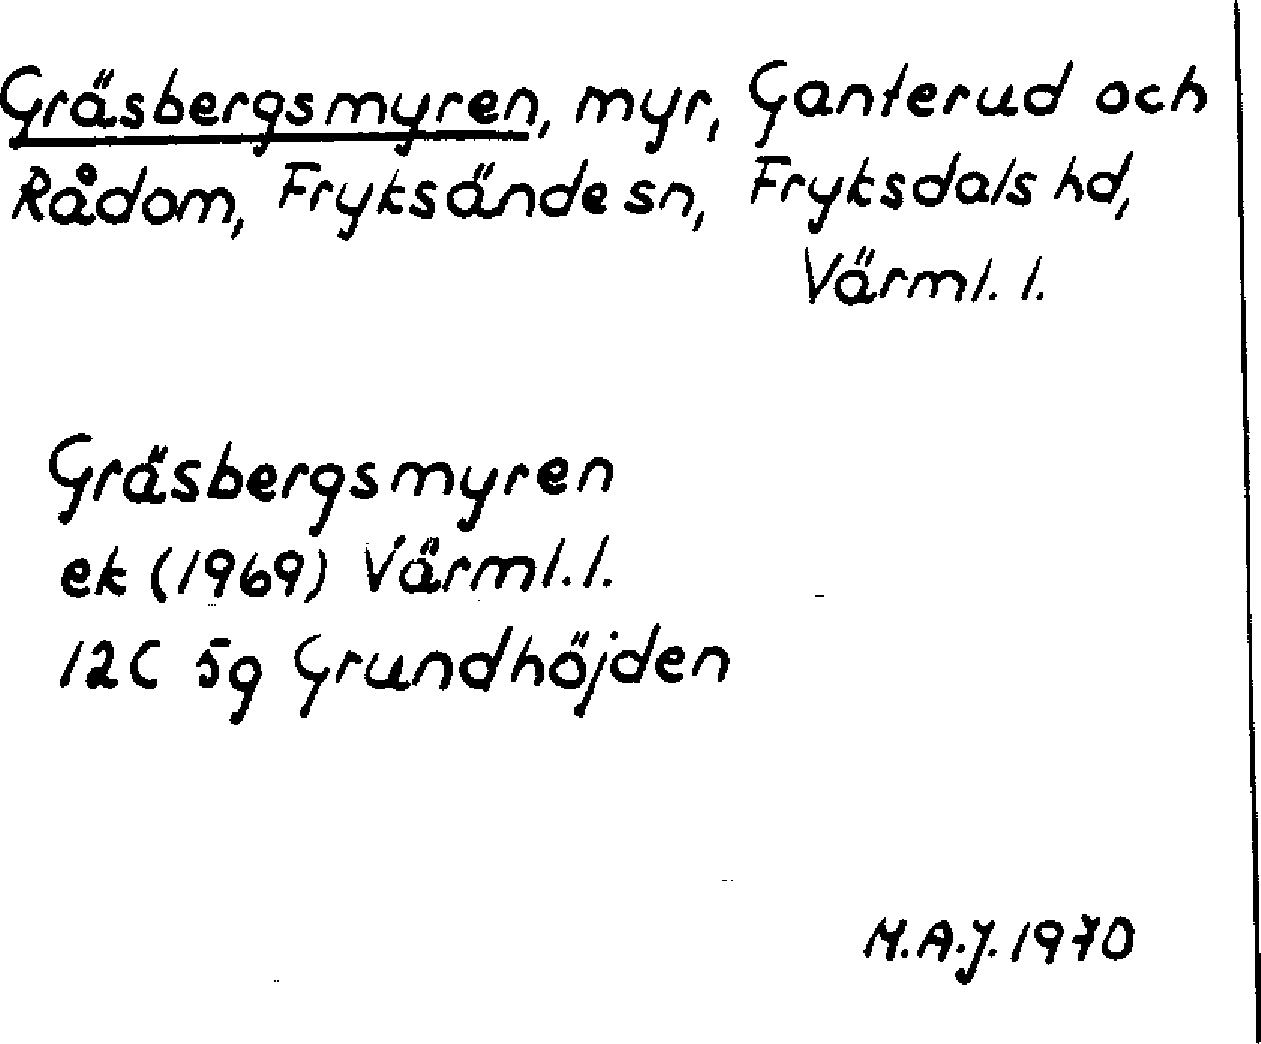 Gräsbergsmyren, myr, Ganterud och
Rådom, Fryksände sn, Fryksdals hd,
Värml. l.
Gräsbergsmyren
ek (1969) Värml. l.
12C 5g Grundhöjden
M.A.J. 1970